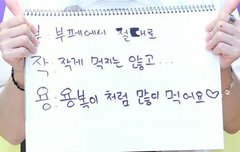 부: 부페에서 절대로
작: 작게 먹지는 않고...
용: 용복이 처럼 많이 먹어요♡